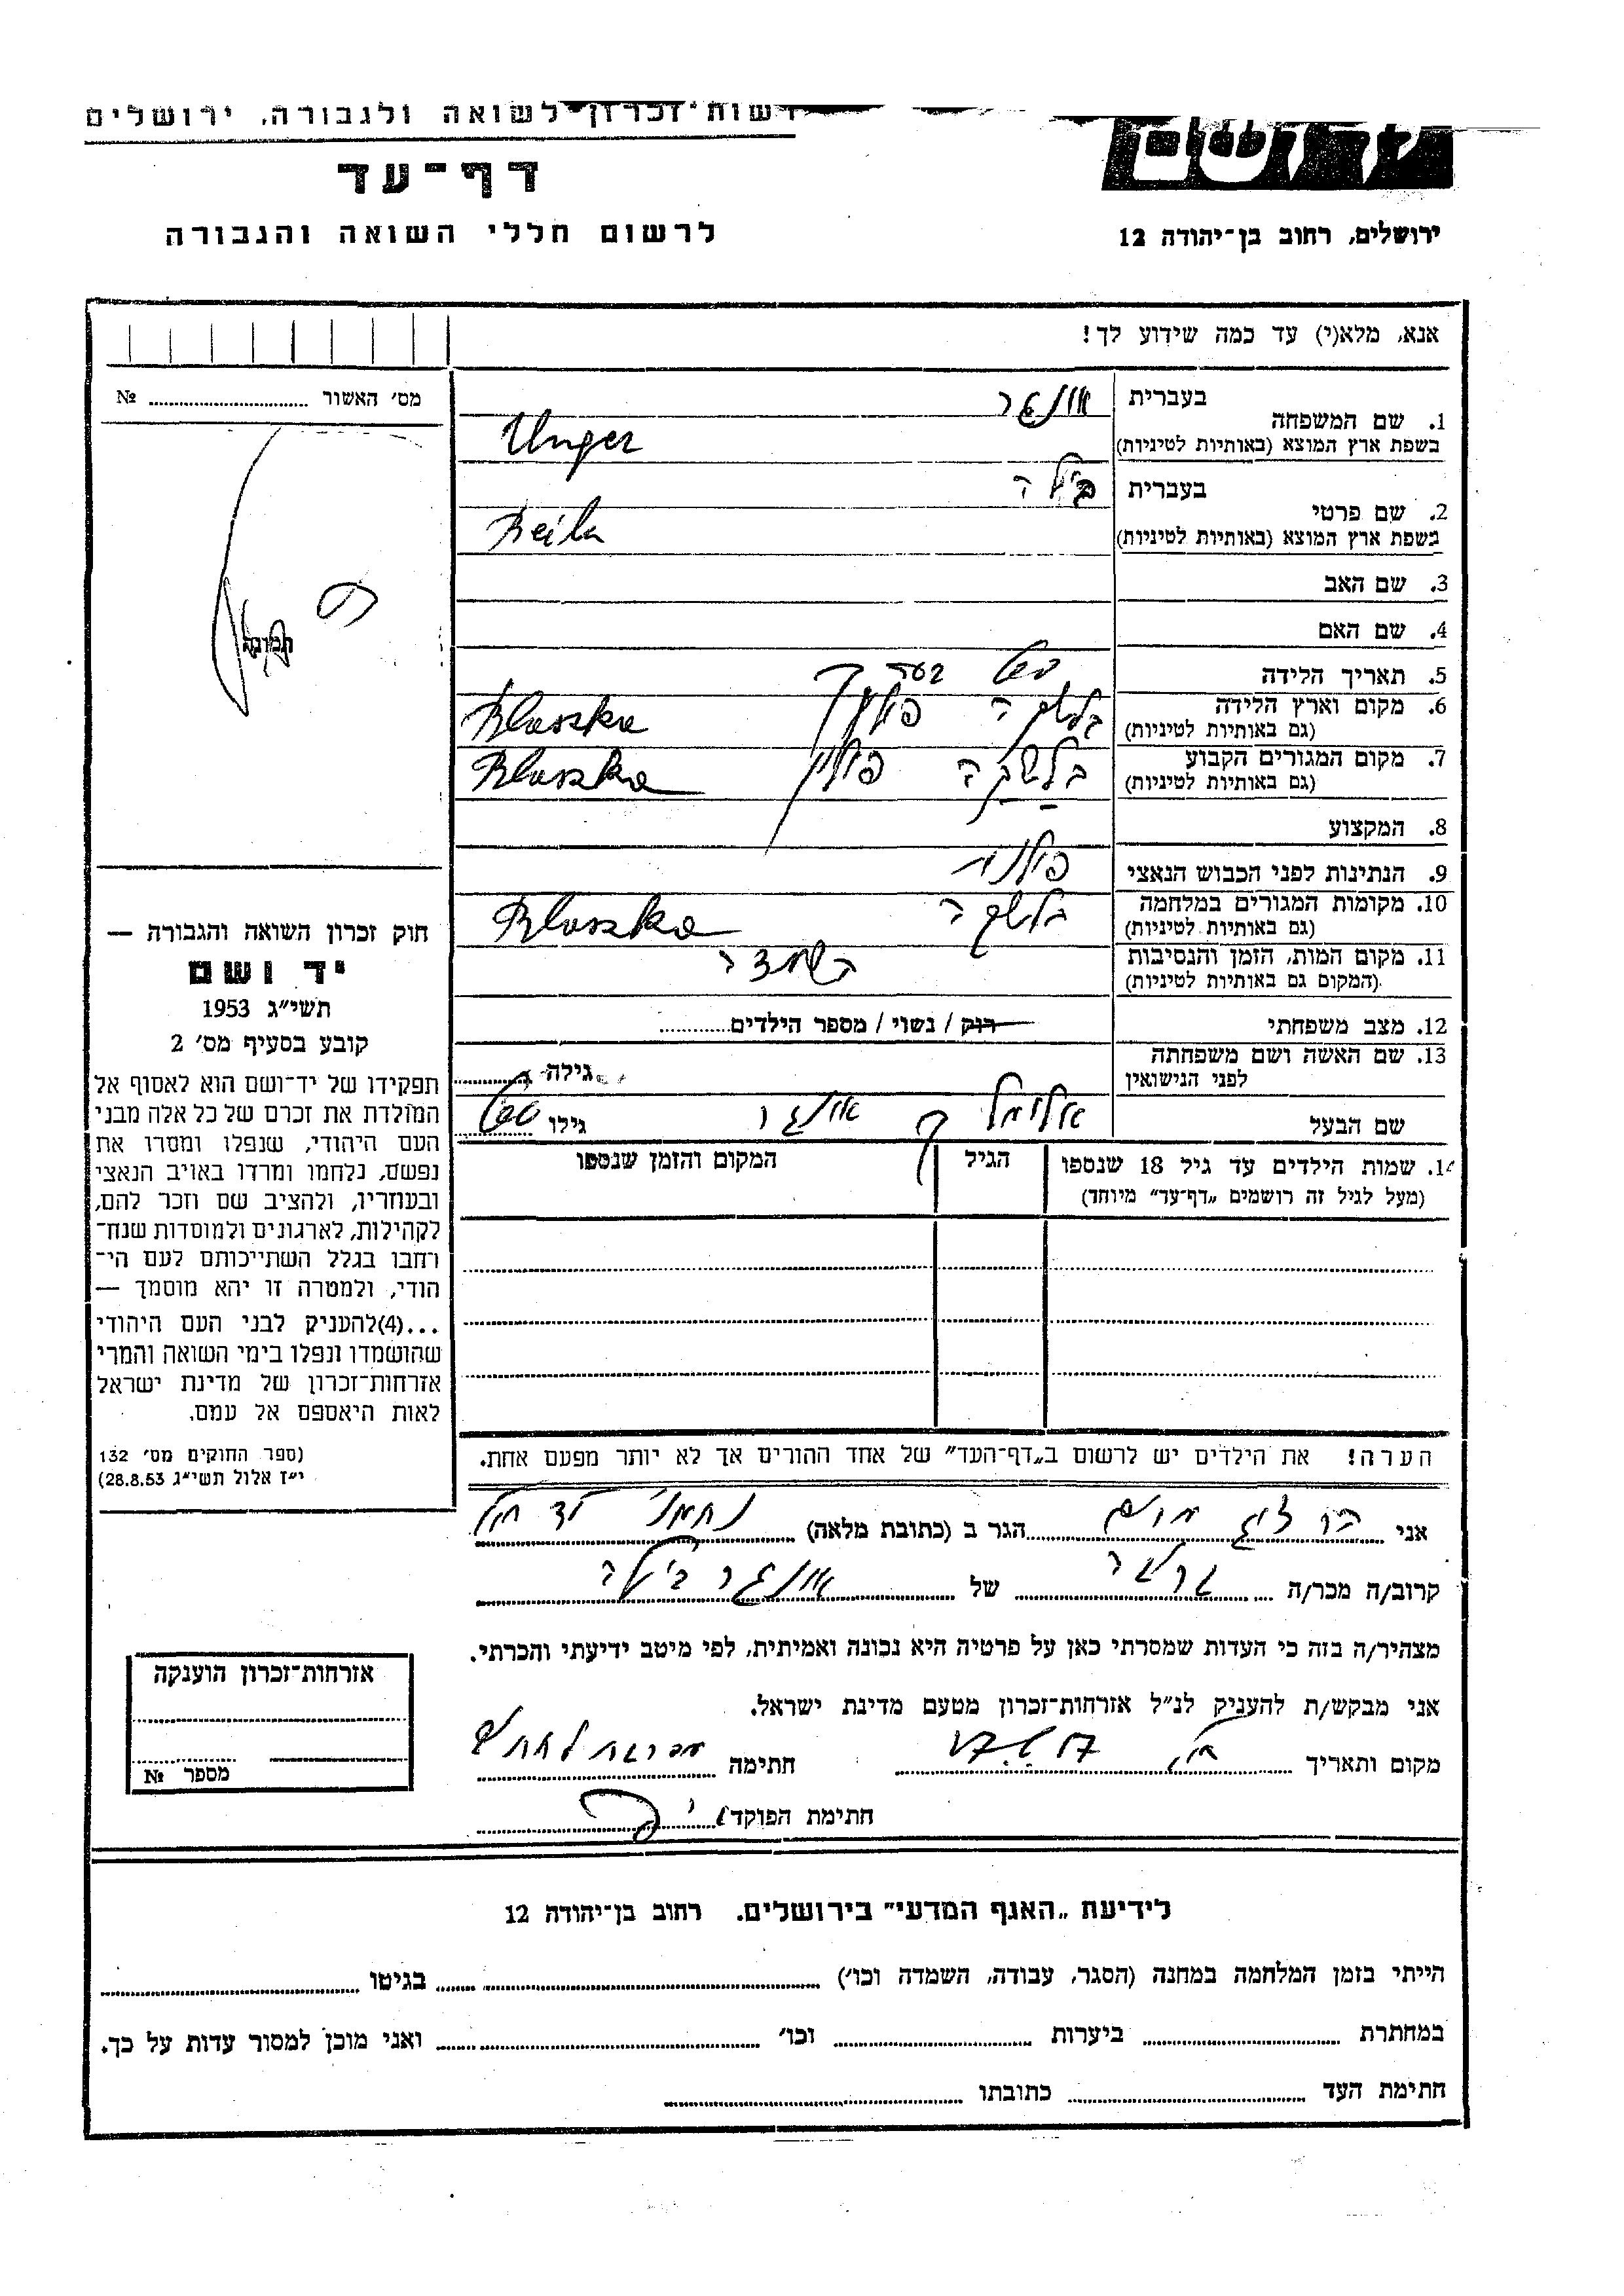 רשות־זכרון לשואה ולגבורה, ירושלים
דף־עד
לרשום חללי השואה והגבורה
ירושלים, רחוב בן־יהודה 12
אנא, מלא(י) עד כמה שידוע לך!
מס׳ האשור № ........
1. שם המשפחה
בעברית אונגר
בשפת ארץ המוצא (באותיות לטיניות) Unger
2. שם פרטי
בעברית בילה
בשפת ארץ המוצא (באותיות לטיניות) Beila
3. שם האב
4. שם האם
5. תאריך הלידה
6. מקום וארץ הלידה (גם באותיות לטיניות) בלשקה פולין Blaszka
7. מקום המגורים הקבוע (גם באותיות לטיניות) בלשקה פולין Blaszka
8. המקצוע
9. הנתינות לפני הכבוש הנאצי פולנית
10. מקומות המגורים במלחמה (גם באותיות לטיניות) בלשקה Blaszka
11. מקום המות, הזמן והנסיבות (המקום גם באותיות לטיניות) השמדה
12. מצב משפחתי רוק / נשוי / מספר הילדים........
13. שם האשה ושם משפחתה לפני הנישואין גילה ........
שם הבעל אלימלך אונגר גילו
14. שמות הילדים עד גיל 18 שנספו (מעל לגיל זה רושמים „דף־עד” מיוחד)
הגיל
המקום והזמן שנספו
הערה! את הילדים יש לרשום ב„דף־העד” של אחד ההורים אך לא יותר מפעם אחת.
תמונה
חוק זכרון השואה והגבורה —
יד ושם
תשי״ג 1953
קובע בסעיף מס׳ 2
תפקידו של יד־ושם הוא לאסוף אל
המולדת את זכרם של כל אלה מבני
העם היהודי, שנפלו ומסרו את
נפשם, נלחמו ומרדו באויב הנאצי
ובעוזריו, ולהציב שם וזכר להם,
לקהילות, לארגונים ולמוסדות שנח־
רחבו בגלל השתייכותם לעם הי־
הודי, ולמטרה זו יהא מוסמך —
...(4)להעניק לבני העם היהודי
שהושמדו ונפלו בימי השואה והמרי
אזרחות־זכרון של מדינת ישראל
לאות היאספם אל עמם.
(ספר החוקים מס׳ 132
י״ז אלול תשי״ג 28.8.53)
אני ........ הגר ב (כתובת מלאה) ........
קרוב/ה מכר/ה ........ של אונגר בילה
מצהיר/ה בזה כי העדות שמסרתי כאן על פרטיה היא נכונה ואמיתית, לפי מיטב ידיעתי והכרתי.
אני מבקש/ת להעניק לנ״ל אזרחות־זכרון מטעם מדינת ישראל.
מקום ותאריך ........ חתימה ........
חתימת הפוקד ........
אזרחות־זכרון הוענקה
מספר №
לידיעת „האגף המדעי” בירושלים. רחוב בן־יהודה 12
הייתי בזמן המלחמה במחנה (הסגר, עבודה, השמדה וכו׳) ........ בגיטו ........
במחתרת ........ ביערות ........ וכו׳ ........ ואני מוכן למסור עדות על כך.
חתימת העד ........ כתובתו ........